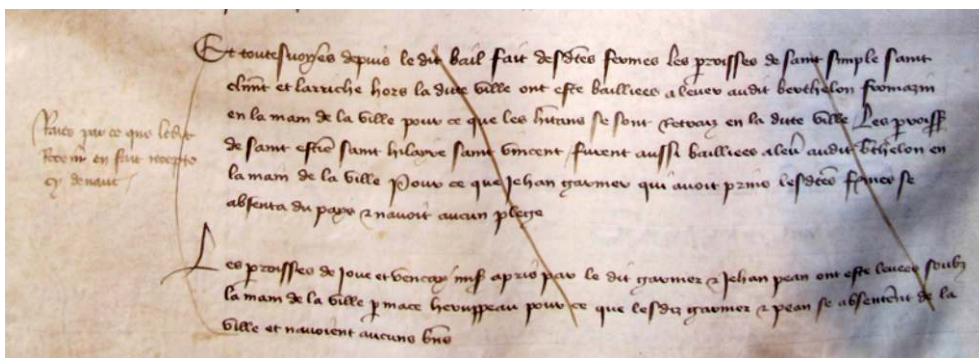 Et toutesvoyes depuis le dit bail fait desdtes fermes les proisses de saint simple saint
clmnt et larriche hors la dite ville ont este bailliees a lever audit berthelon fromazin
en la main de la ville pour ce que les hitans se sont retraiz en la dite ville Les proiss
de saint estiene saint hilaire saint vincent furent aussi bailliees a lev audit bthelon en
la main de la ville Pour ce que Jehan garnier qui avoit prins lesdtes fermes se
absenta du pays et navoit aucun plege
Raies par ce que ledit
Recev en fait recepte
cy devant
Les proisses de Joue et vencay mis a pris par le dit garnier et Jehan pean ont este levees soubz
la main de la ville p mace heruppeau pour ce que lesdiz garnier et pean se absentent de la
ville et navoient aucuns bns